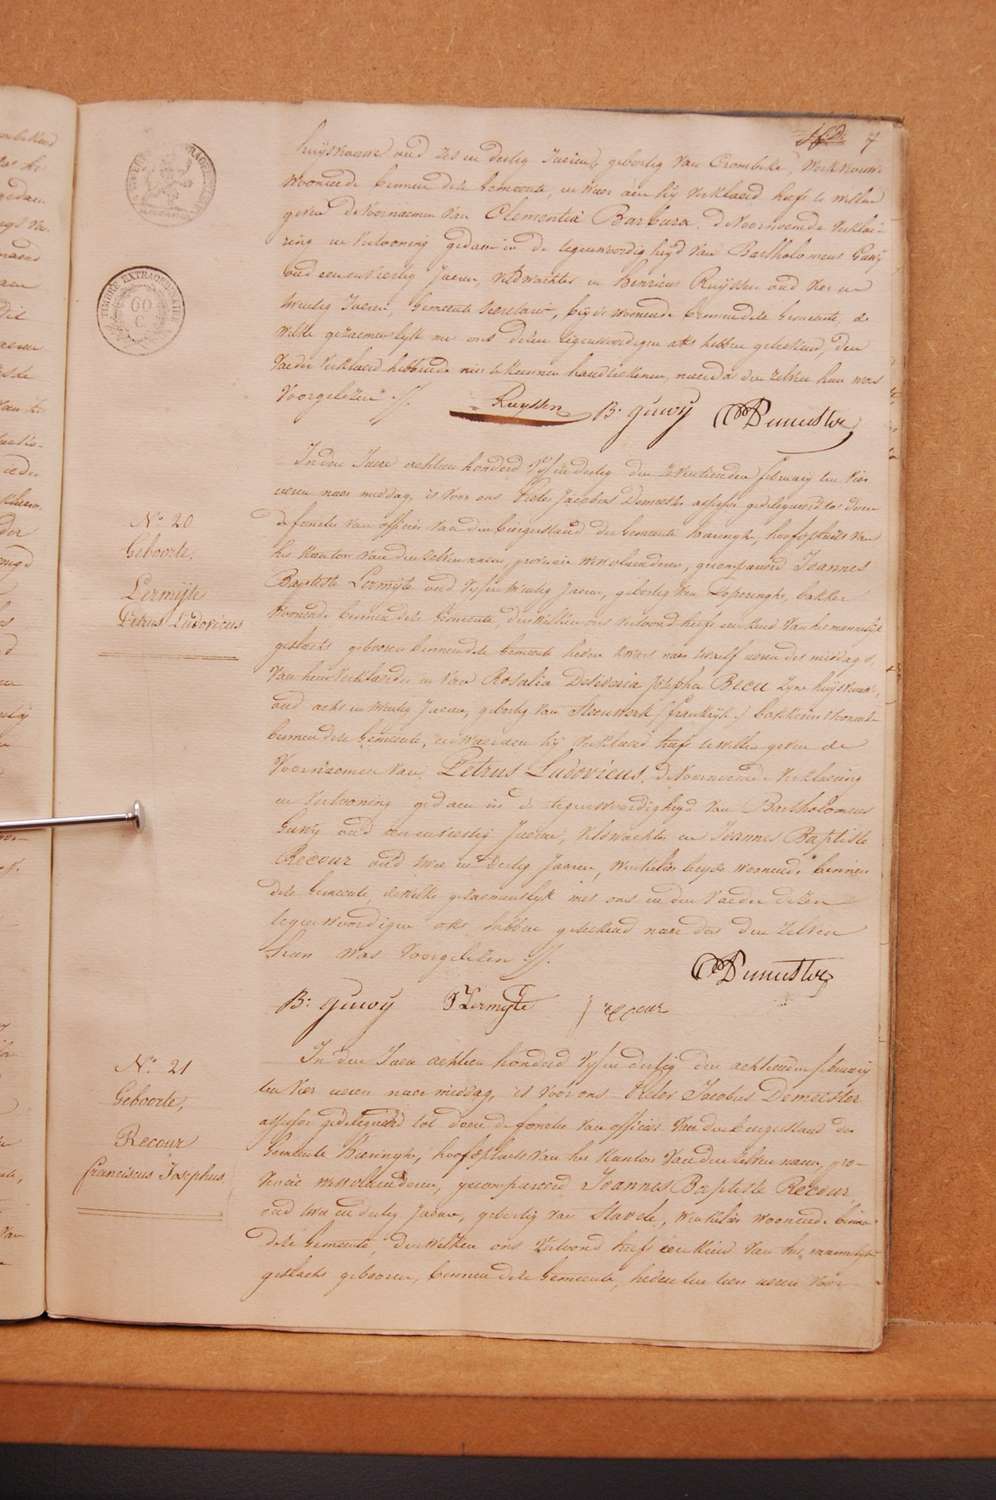 7
huijsvrouw oud zes en dertig Jaeren, geboortig van Crombeke, werkvrouw
woonende binnen deze Gemeente, en waer aen hij verklaerd heeft te willen
geven de voornaemen van Clementia Barbara. de voornoemde verklae-
ring en vertooning gedaen in de tegenwoordigheyd van Bartholomeus Guwij
oud een en veertig Jaeren, veldwachter en Henricus Ruyssen oud vier en
twintig Jaeren, Gemeente Secretaris, beijde woonende binnen deze Gemeente de
welke gezaementlijk met ons dezen tegenwoordigen akt hebben geteekend, den
Vaeder verklaerd hebbende niet te kunnen handteekenen, naer dat den zelven hun was
Voorgelezen ./.
Ruyssen B: guwij Demeester
In den Jaere achtien honderd vyf en dertig den zeventienden february ten vier
ueren naer middag, is voor ons Pieter Jacobus Demeester assessor gedelegueerd tot doen
de fonctie van officier van den burgerstand der Gemeente Haringhe, hoofdplaets van
het Kanton van den zelven naem, provincie westvlaenderen, gecompareerd Joannes
Baptiste Lermijte oud vyf en twintig Jaeren, geboortig van Poperinghe, bakker
woonende binnen deze Gemeente, den welken ons vertoond heeft een kind van het mannelijk
geslacht geboren binnen deze Gemeente heden kwart naer twaelf ueren des middags,
van hem verklaerder en van Rosalia Desideria Josepha Becu zyne huijsvrouw,
oud acht en twintig Jaeren, geboortig van Steenwerk /: frankrijk :/ bakkerin woonende
binnen deze Gemeente, en waer aen hij verklaerd heeft te willen geven de
Voornaemen van Petrus Ludovicus, de voornoemde verklaering
en vertooning gedaen in de tegenwoordigheyd van Bartholomeus
Guwij oud een en veertig Jaeren, veldwachter en Joannes Baptiste
Recour oud twee en dertig Jaeren, winkelier beyde woonende binnen
deze Gemeente, de welke gezaementlyk met ons en den Vaeder dezen
tegenwoordigen akt hebben geteekend naer dat den zelven
hun was Voorgelezen ./.
Demeester
B: guwij Lermyte recour
In den Jaere achtien honderd vyf en dertig den achtienden february
ten vier ueren naer middag, is voor ons Pieter Jacobus Demeester
assessor gedelegueerd tot doen de fonctie van officier van den burgerstand der
Gemeente Haringhe, hoofdplaets van het Kanton van den zelven naem, pro-
vincie westvlaenderen, gecompareerd Joannes Baptiste Recour,
oud twee en dertig Jaeren, geboortig van Stavele, winkelier woonende binnen
deze Gemeente, den welken ons vertoond heeft een kind van het mannelijk
geslacht geboren, binnen deze Gemeente, heden ten tien ueren voor
TIMBRE EXTRAORDINAIRE
60
C
N.o 20
Geboorte,
Lermijte
Petrus Ludovicus
N.o 21
Geboorte,
Recour
franciscus Josephus